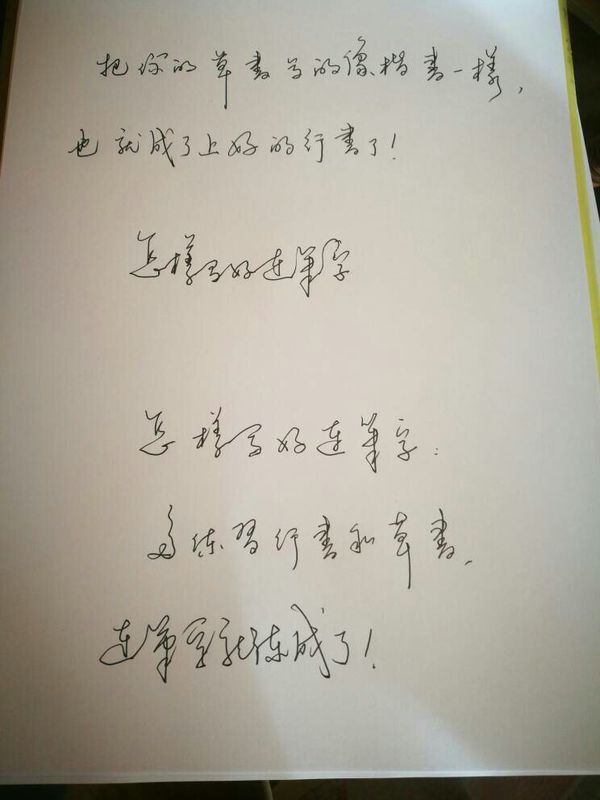 把你的草书写的像楷书一樣，
也就成了上好的行書了！
怎樣写好连筆字
怎樣写好连筆字：
多练習行書和草書，
连筆字就练成了！